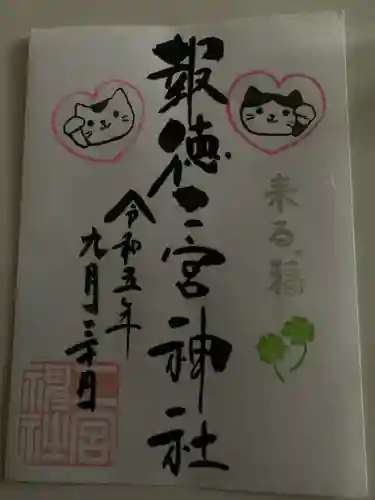 来る福
報徳二宮神社
令和五年
九月三十日
二宮
神社